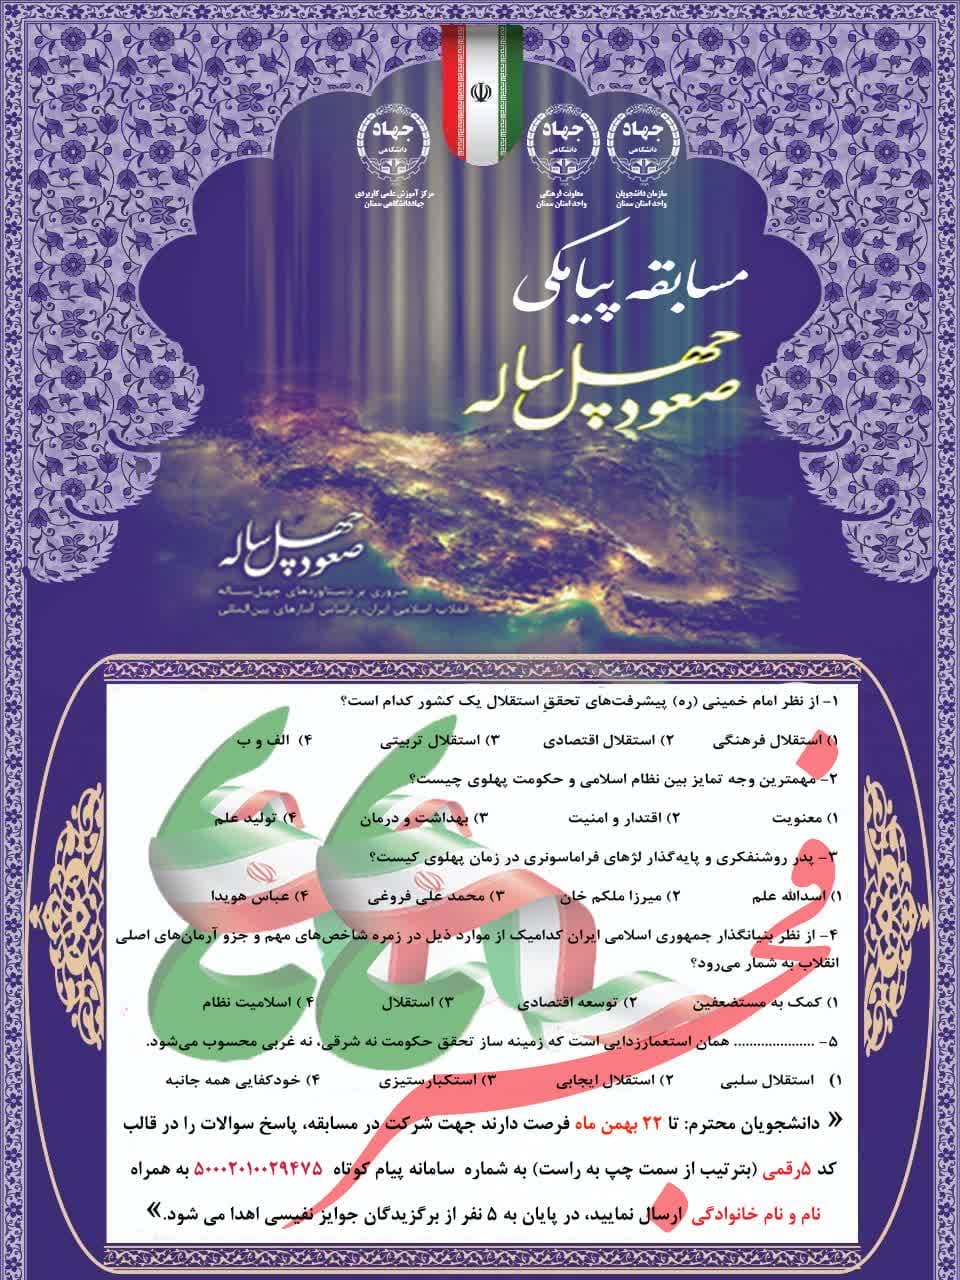 جهاد
دانشگاهی
سازمان دانشجویان
واحد استان سمنان
جهاد
دانشگاهی
معاونت فرهنگی
واحد استان سمنان
جهاد
دانشگاهی
مرکز آموزش علمی کاربردی
جهاددانشگاهی سمنان
مسابقه پیامکی
صعود چهل ساله
صعود چهل ساله
مروری بر دستاوردهای چهل‌ساله
انقلاب اسلامی ایران، براساس آمارهای بین‌المللی
۱- از نظر امام خمینی (ره) پیشرفت‌های تحققِ استقلال یک کشور کدام است؟
۱) استقلال فرهنگی ۲) استقلال اقتصادی ۳) استقلال تربیتی ۴) الف و ب
۲- مهمترین وجه تمایز بین نظام اسلامی و حکومت پهلوی چیست؟
۱) معنویت ۲) اقتدار و امنیت ۳) بهداشت و درمان ۴) تولید علم
۳- پدر روشنفکری و پایه‌گذار لژهای فراماسونری در زمان پهلوی کیست؟
۱) اسدالله علم ۲) میرزا ملکم خان ۳) محمد علی فروغی ۴) عباس هویدا
۴- از نظر بنیانگذار جمهوری اسلامی ایران کدامیک از موارد ذیل در زمره شاخص‌های مهم و جزو آرمان‌های اصلی
انقلاب به شمار می‌رود؟
۱) کمک به مستضعفین ۲) توسعه اقتصادی ۳) استقلال ۴) اسلامیت نظام
۵- ..................... همان استعمارزدایی است که زمینه ساز تحقق حکومت نه شرقی، نه غربی محسوب می‌شود.
۱) استقلال سلبی ۲) استقلال ایجابی ۳) استکبارستیزی ۴) خودکفایی همه جانبه
« دانشجویان محترم: تا ۲۲ بهمن ماه فرصت دارند جهت شرکت در مسابقه، پاسخ سوالات را در قالب
کد ۵رقمی (بترتیب از سمت چپ به راست) به شماره سامانه پیام کوتاه ۵۰۰۰۲۰۱۰۰۲۹۴۷۵ به همراه
نام و نام خانوادگی ارسال نمایید، در پایان به ۵ نفر از برگزیدگان جوایز نفیسی اهدا می شود.»